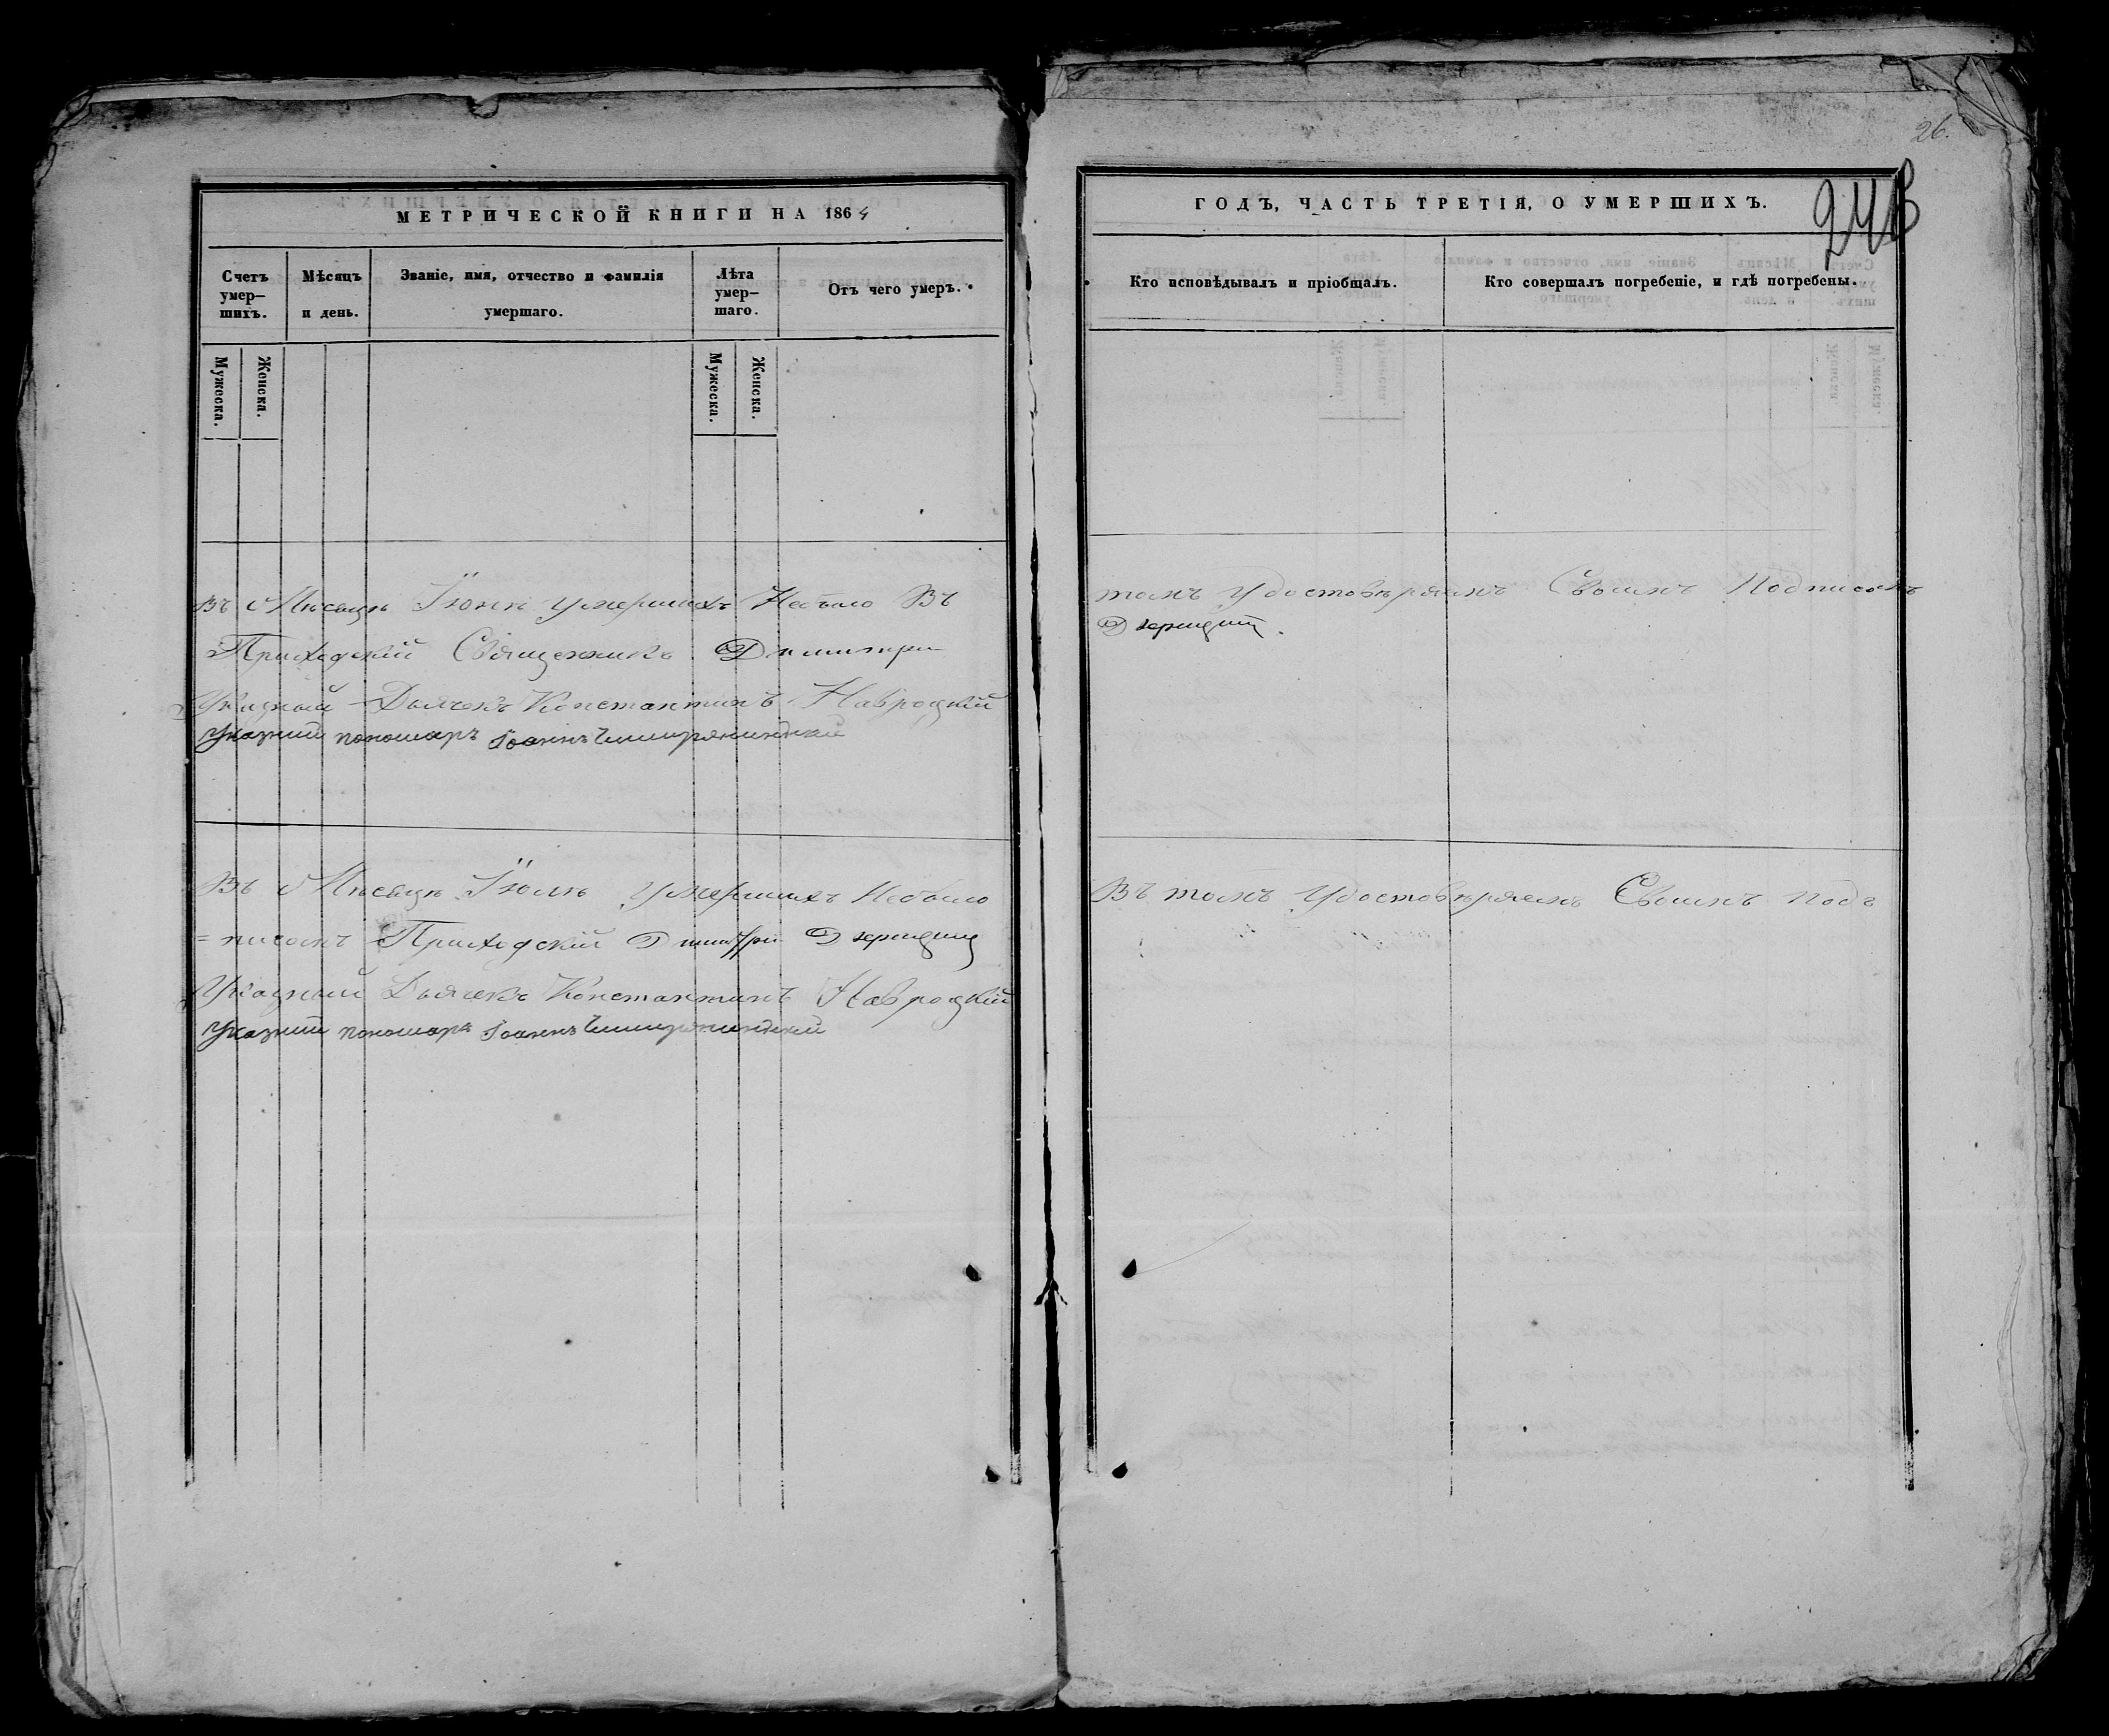 26.
МЕТРИЧЕСКОЙ КНИГИ НА 1864
Счетъ умер—шихъ.
Мѣсяцъ и день.
Званіе, имя, отчество и фамилія умершаго.
Лѣта умер—шаго.
Отъ чего умеръ.
Мужеска.
Женска.
Мужеска.
Женска.
Въ Мѣсяцѣ Іюнѣ Умершихъ Небыло Въ
Приходскій Священникъ Димитри
Указный Дьячекъ Константинъ Навроцкій
Указний пономарь Іоаннъ
Въ Мѣсяцѣ Іюлѣ Умершихъ Небыло
= писомъ Приходскій Димитрій
Указный Дьячекъ Константинъ Навроцкій
Указний пономарь Іоаннъ
ГОДЪ, ЧАСТЬ ТРЕТІЯ, О УМЕРШИХЪ.
Кто исповѣдывалъ и пріобщалъ.
Кто совершалъ погребеніе, и гдѣ погребены.
томъ Удостовѣряемъ Своимъ Подписомъ
Въ томъ Удостовѣряемъ Своимъ Под=